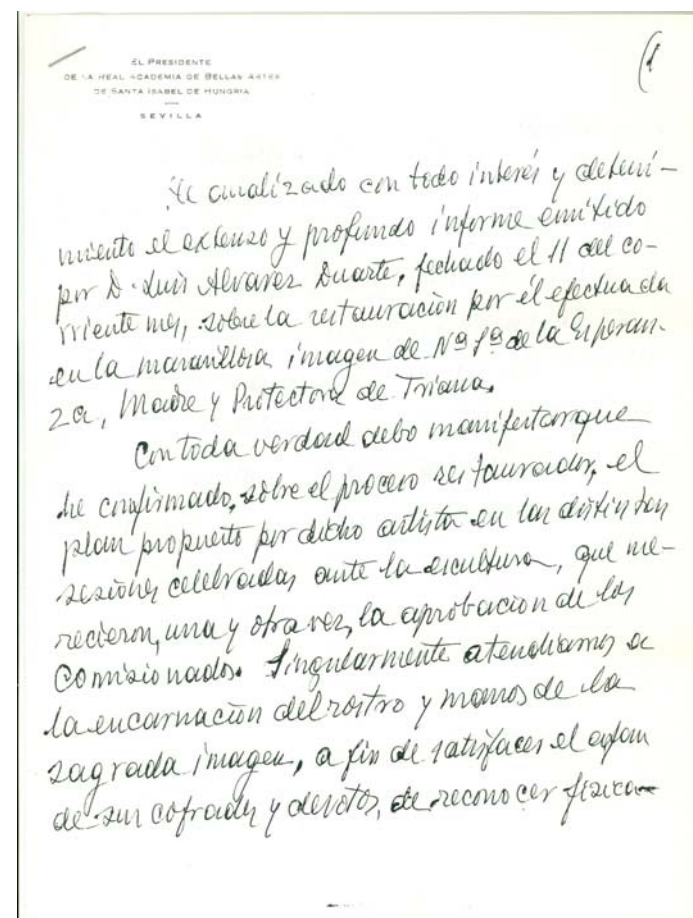 EL PRESIDENTE
DE LA REAL ACADEMIA DE BELLAS ARTES
DE SANTA ISABEL DE HUNGRIA
SEVILLA
(1
He analizado con todo interés y deteni-
miento el extenso y profundo informe emitido
por D. Luis Alvarez Duarte, fechado el 11 del co-
rriente mes, sobre la restauración por él efectuada
en la maravillosa imagen de Nª Sª de la Esperan-
za, Madre y Protectora de Triana.
Con toda verdad debo manifestar que
he confirmado, sobre el proceso restaurador, el
plan propuesto por dicho artista en las distintas
sesiones celebradas ante la escultura, que me-
recieron, una y otra vez, la aprobación de los
Comisionados. Singularmente atendíamos a
la encarnación del rostro y manos de la
sagrada imagen, a fin de satisfacer el afan
de sus cofrades y devotos, de reconocer física-